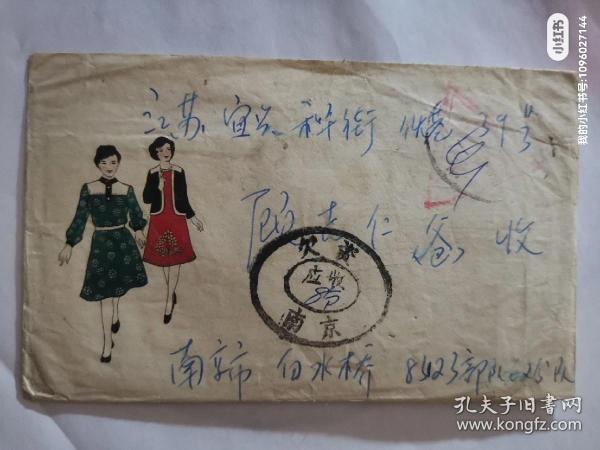 小红书
我的小红书号:1096027144
江苏 宜兴 和桥街 39号
顾志仁(爸)收
欠资
应收
85
南京
南京市 白水桥 8423部队025队
孔夫子旧书网
www.kongfz.com